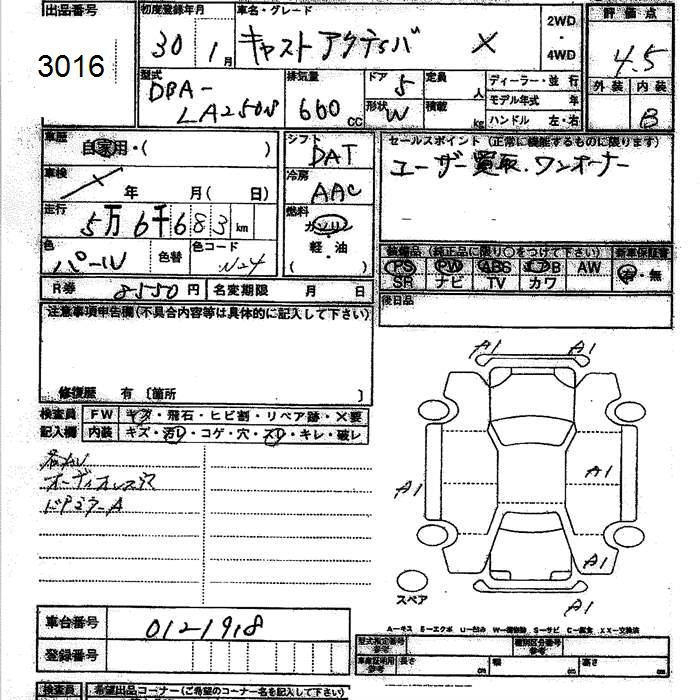 出品番号 初度登録年月 車名・グレード 2WD・4WD 評価点
3016 30 1月 キャスト アクティバ X 4.5
型式 排気量 ドア 5 定員 人 ディーラー・並行 外装 内装
DBA-LA250S 660cc 形状 W 積載 kg モデル年式 年 B
ハンドル 左・右
車歴 自家用・( ) シフト DAT セールスポイント (正常に機能するものに限ります)
車検 年 月( 日) 冷房 AAC ユーザー買取.ワンオーナー
走行 5万6千683km 燃料 ガソリン・軽・油 ( )
色 パール 色替 色コード W24 装備品 (純正品に限り○をつけて下さい) 新車保証書
PS PW ABS エアB AW 有・無
SR ナビ TV カワ
R券 8550円 名変期限 月 日 後日品
注意事項申告欄(不具合内容等は具体的に記入して下さい)
修復歴 有 〔箇所 〕
検査員 FW キズ・飛石・ヒビ割・リペア跡・×要
記入欄 内装 キズ・汚レ・コゲ・穴・スレ・キレ・破レ
オーディオレス穴
ドアミラーA
A1 A1
A1 A1
A1
A1
スペア
A-キズ E-エクボ U-凹み W-補修跡 S-サビ C-腐食 XX-交換済
車台番号 0121918
登録番号
型式指定番号 参考 類別区分番号 参考
車庫証明用 参考 長さ cm 幅 cm 高さ cm
検査員 希望出品コーナー(ご希望のコーナー名を記入して下さい)